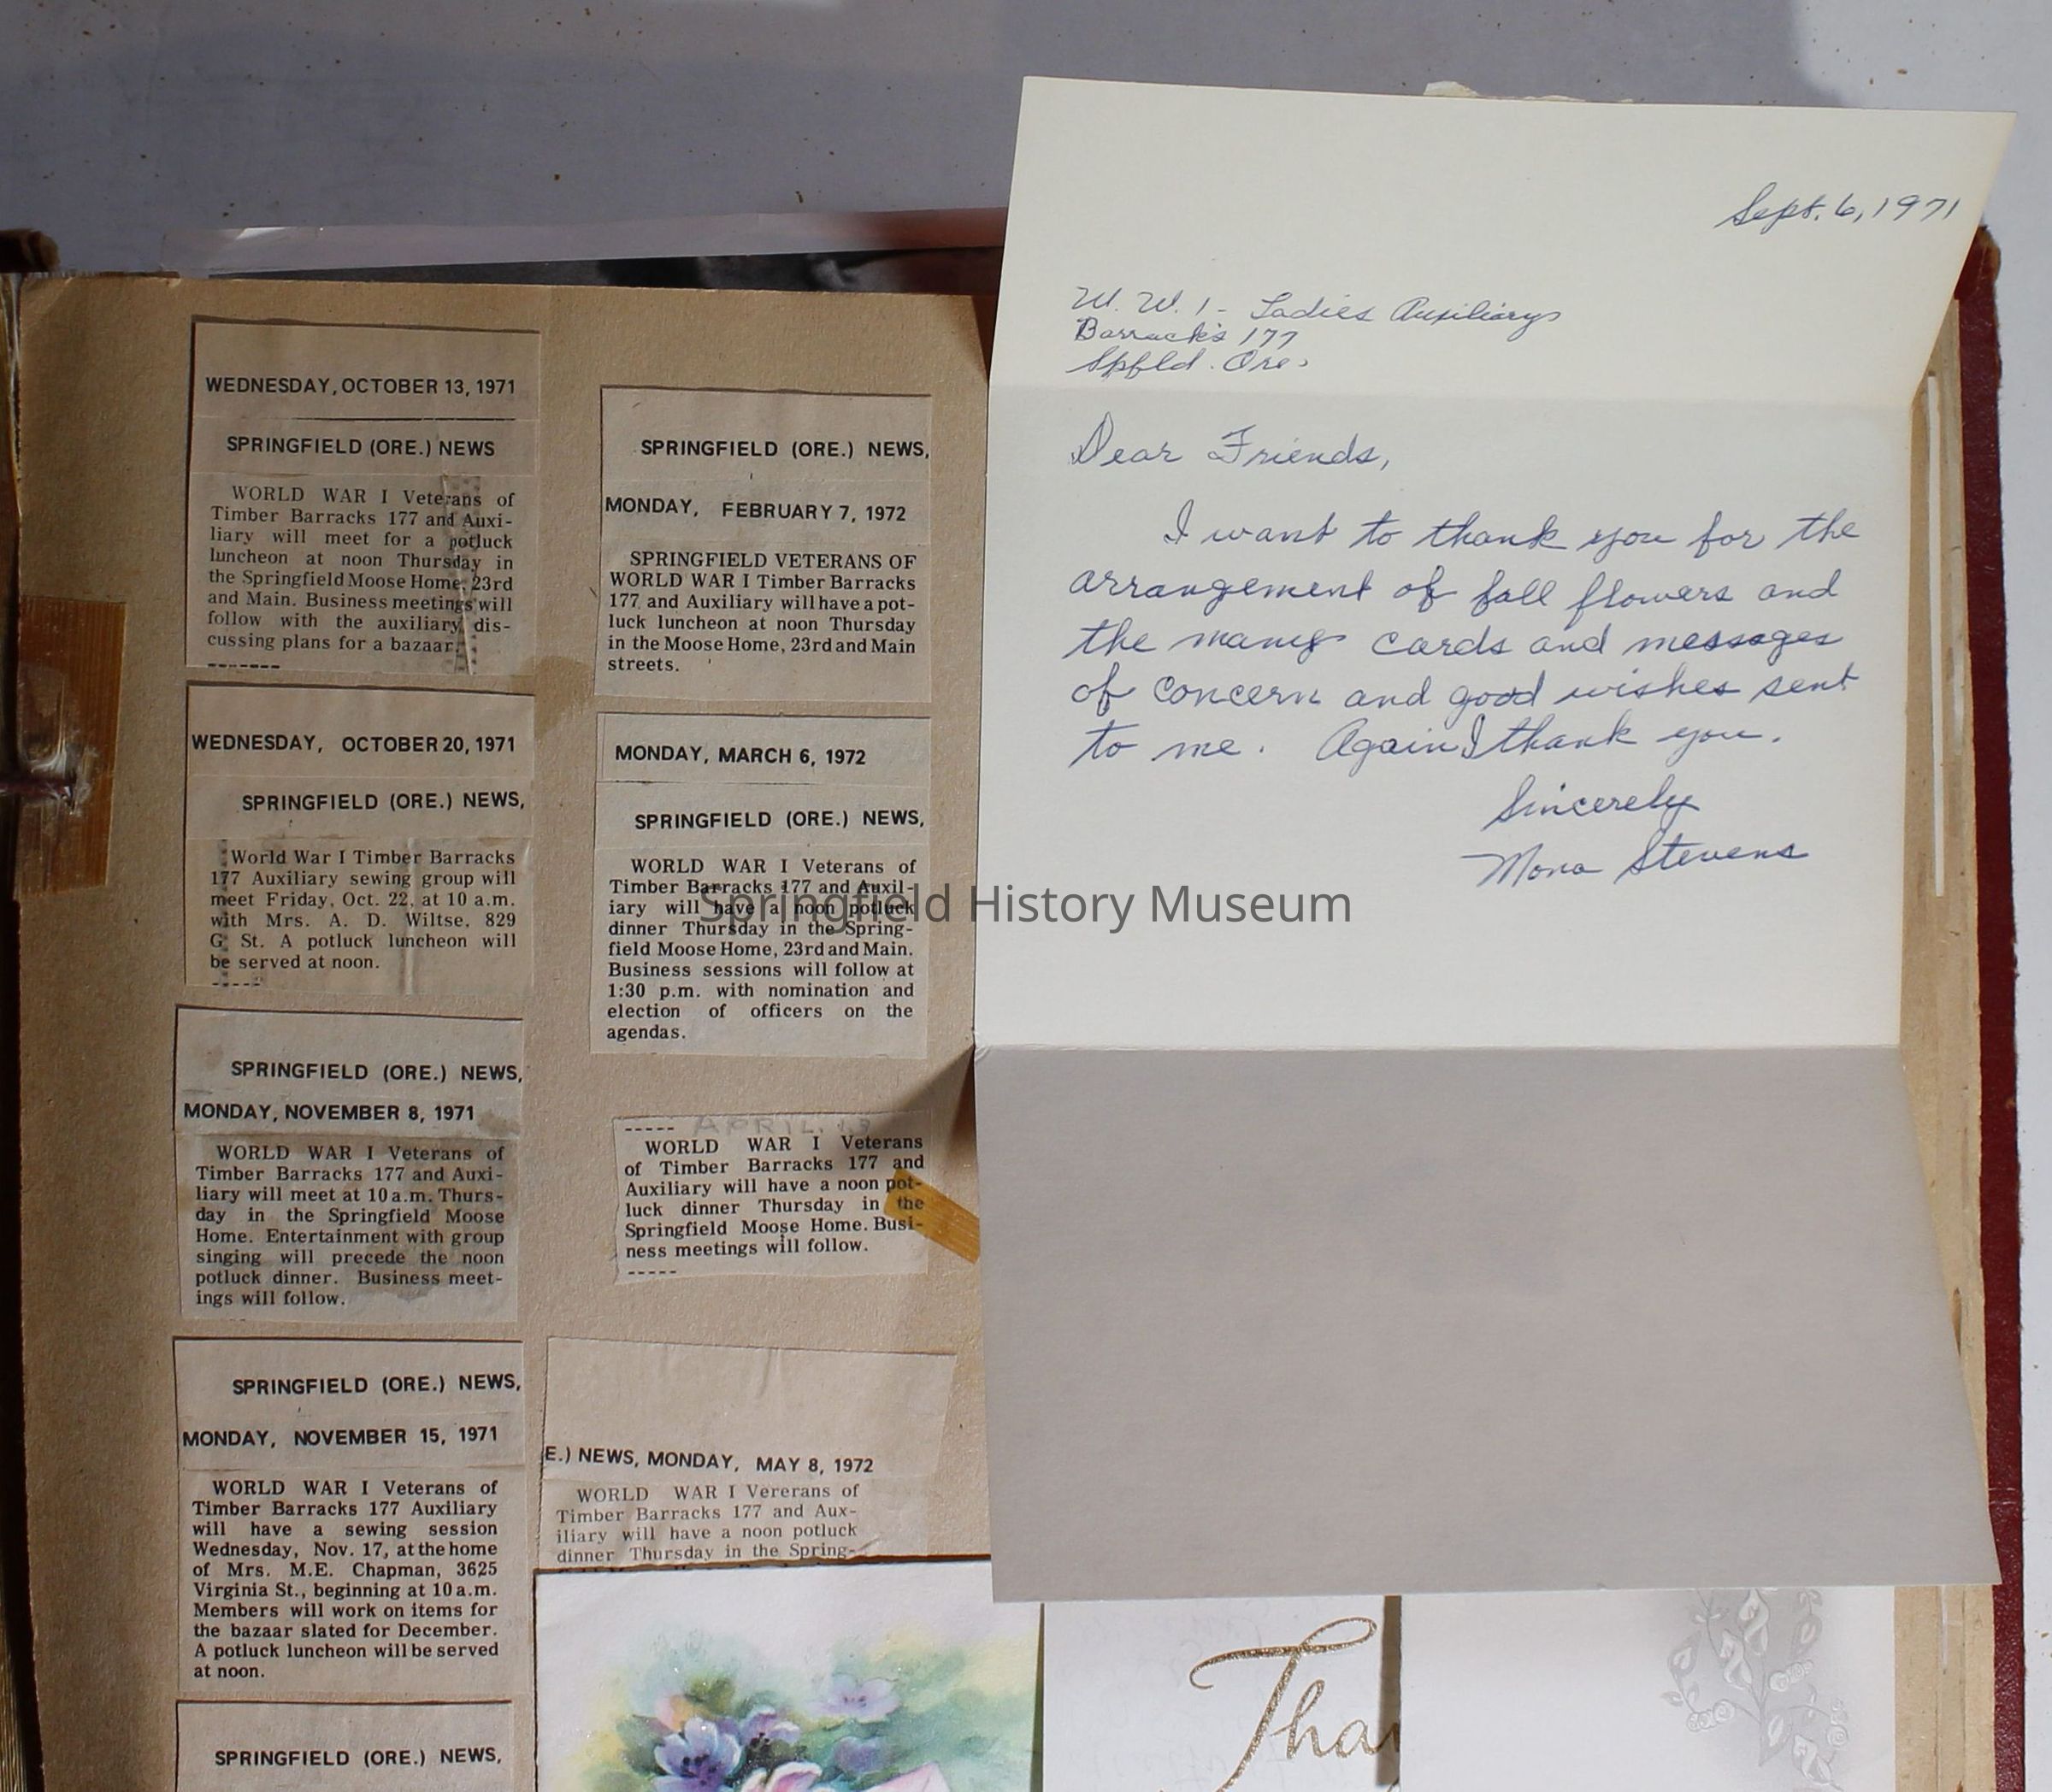 WEDNESDAY, OCTOBER 13, 1971
SPRINGFIELD (ORE.) NEWS
WORLD WAR I Veterans of
Timber Barracks 177 and Auxi-
liary will meet for a potluck
luncheon at noon Thursday in
the Springfield Moose Home, 23rd
and Main. Business meetings will
follow with the auxiliary dis-
cussing plans for a bazaar.
WEDNESDAY, OCTOBER 20, 1971
SPRINGFIELD (ORE.) NEWS,
World War I Timber Barracks
177 Auxiliary sewing group will
meet Friday, Oct. 22, at 10 a.m.
with Mrs. A. D. Wiltse, 829
G St. A potluck luncheon will
be served at noon.
SPRINGFIELD (ORE.) NEWS,
MONDAY, NOVEMBER 8, 1971
WORLD WAR I Veterans of
Timber Barracks 177 and Auxi-
liary will meet at 10 a.m. Thurs-
day in the Springfield Moose
Home. Entertainment with group
singing will precede the noon
potluck dinner. Business meet-
ings will follow.
SPRINGFIELD (ORE.) NEWS,
MONDAY, NOVEMBER 15, 1971
WORLD WAR I Veterans of
Timber Barracks 177 Auxiliary
will have a sewing session
Wednesday, Nov. 17, at the home
of Mrs. M.E. Chapman, 3625
Virginia St., beginning at 10 a.m.
Members will work on items for
the bazaar slated for December.
A potluck luncheon will be served
at noon.
SPRINGFIELD (ORE.) NEWS,
SPRINGFIELD (ORE.) NEWS,
MONDAY, FEBRUARY 7, 1972
SPRINGFIELD VETERANS OF
WORLD WAR I Timber Barracks
177 and Auxiliary will have a pot-
luck luncheon at noon Thursday
in the Moose Home, 23rd and Main
streets.
MONDAY, MARCH 6, 1972
SPRINGFIELD (ORE.) NEWS,
WORLD WAR I Veterans of
Timber Barracks 177 and Auxil-
iary will have a noon potluck
dinner Thursday in the Spring-
field Moose Home, 23rd and Main.
Business sessions will follow at
1:30 p.m. with nomination and
election of officers on the
agendas.
APRIL 13
WORLD WAR I Veterans
of Timber Barracks 177 and
Auxiliary will have a noon pot-
luck dinner Thursday in the
Springfield Moose Home. Busi-
ness meetings will follow.
E.) NEWS, MONDAY, MAY 8, 1972
WORLD WAR I Vererans of
Timber Barracks 177 and Aux-
iliary will have a noon potluck
dinner Thursday in the Spring-
Sept. 6, 1971
W. W. 1 - Ladies Auxiliarys
Barrack's 177
Spfld. Ore.
Dear Friends,
I want to thank you for the
arrangement of fall flowers and
the many cards and messages
of concern and good wishes sent
to me. Again I thank you.
Sincerely
Mona Stevens
Springfield History Museum
Tha